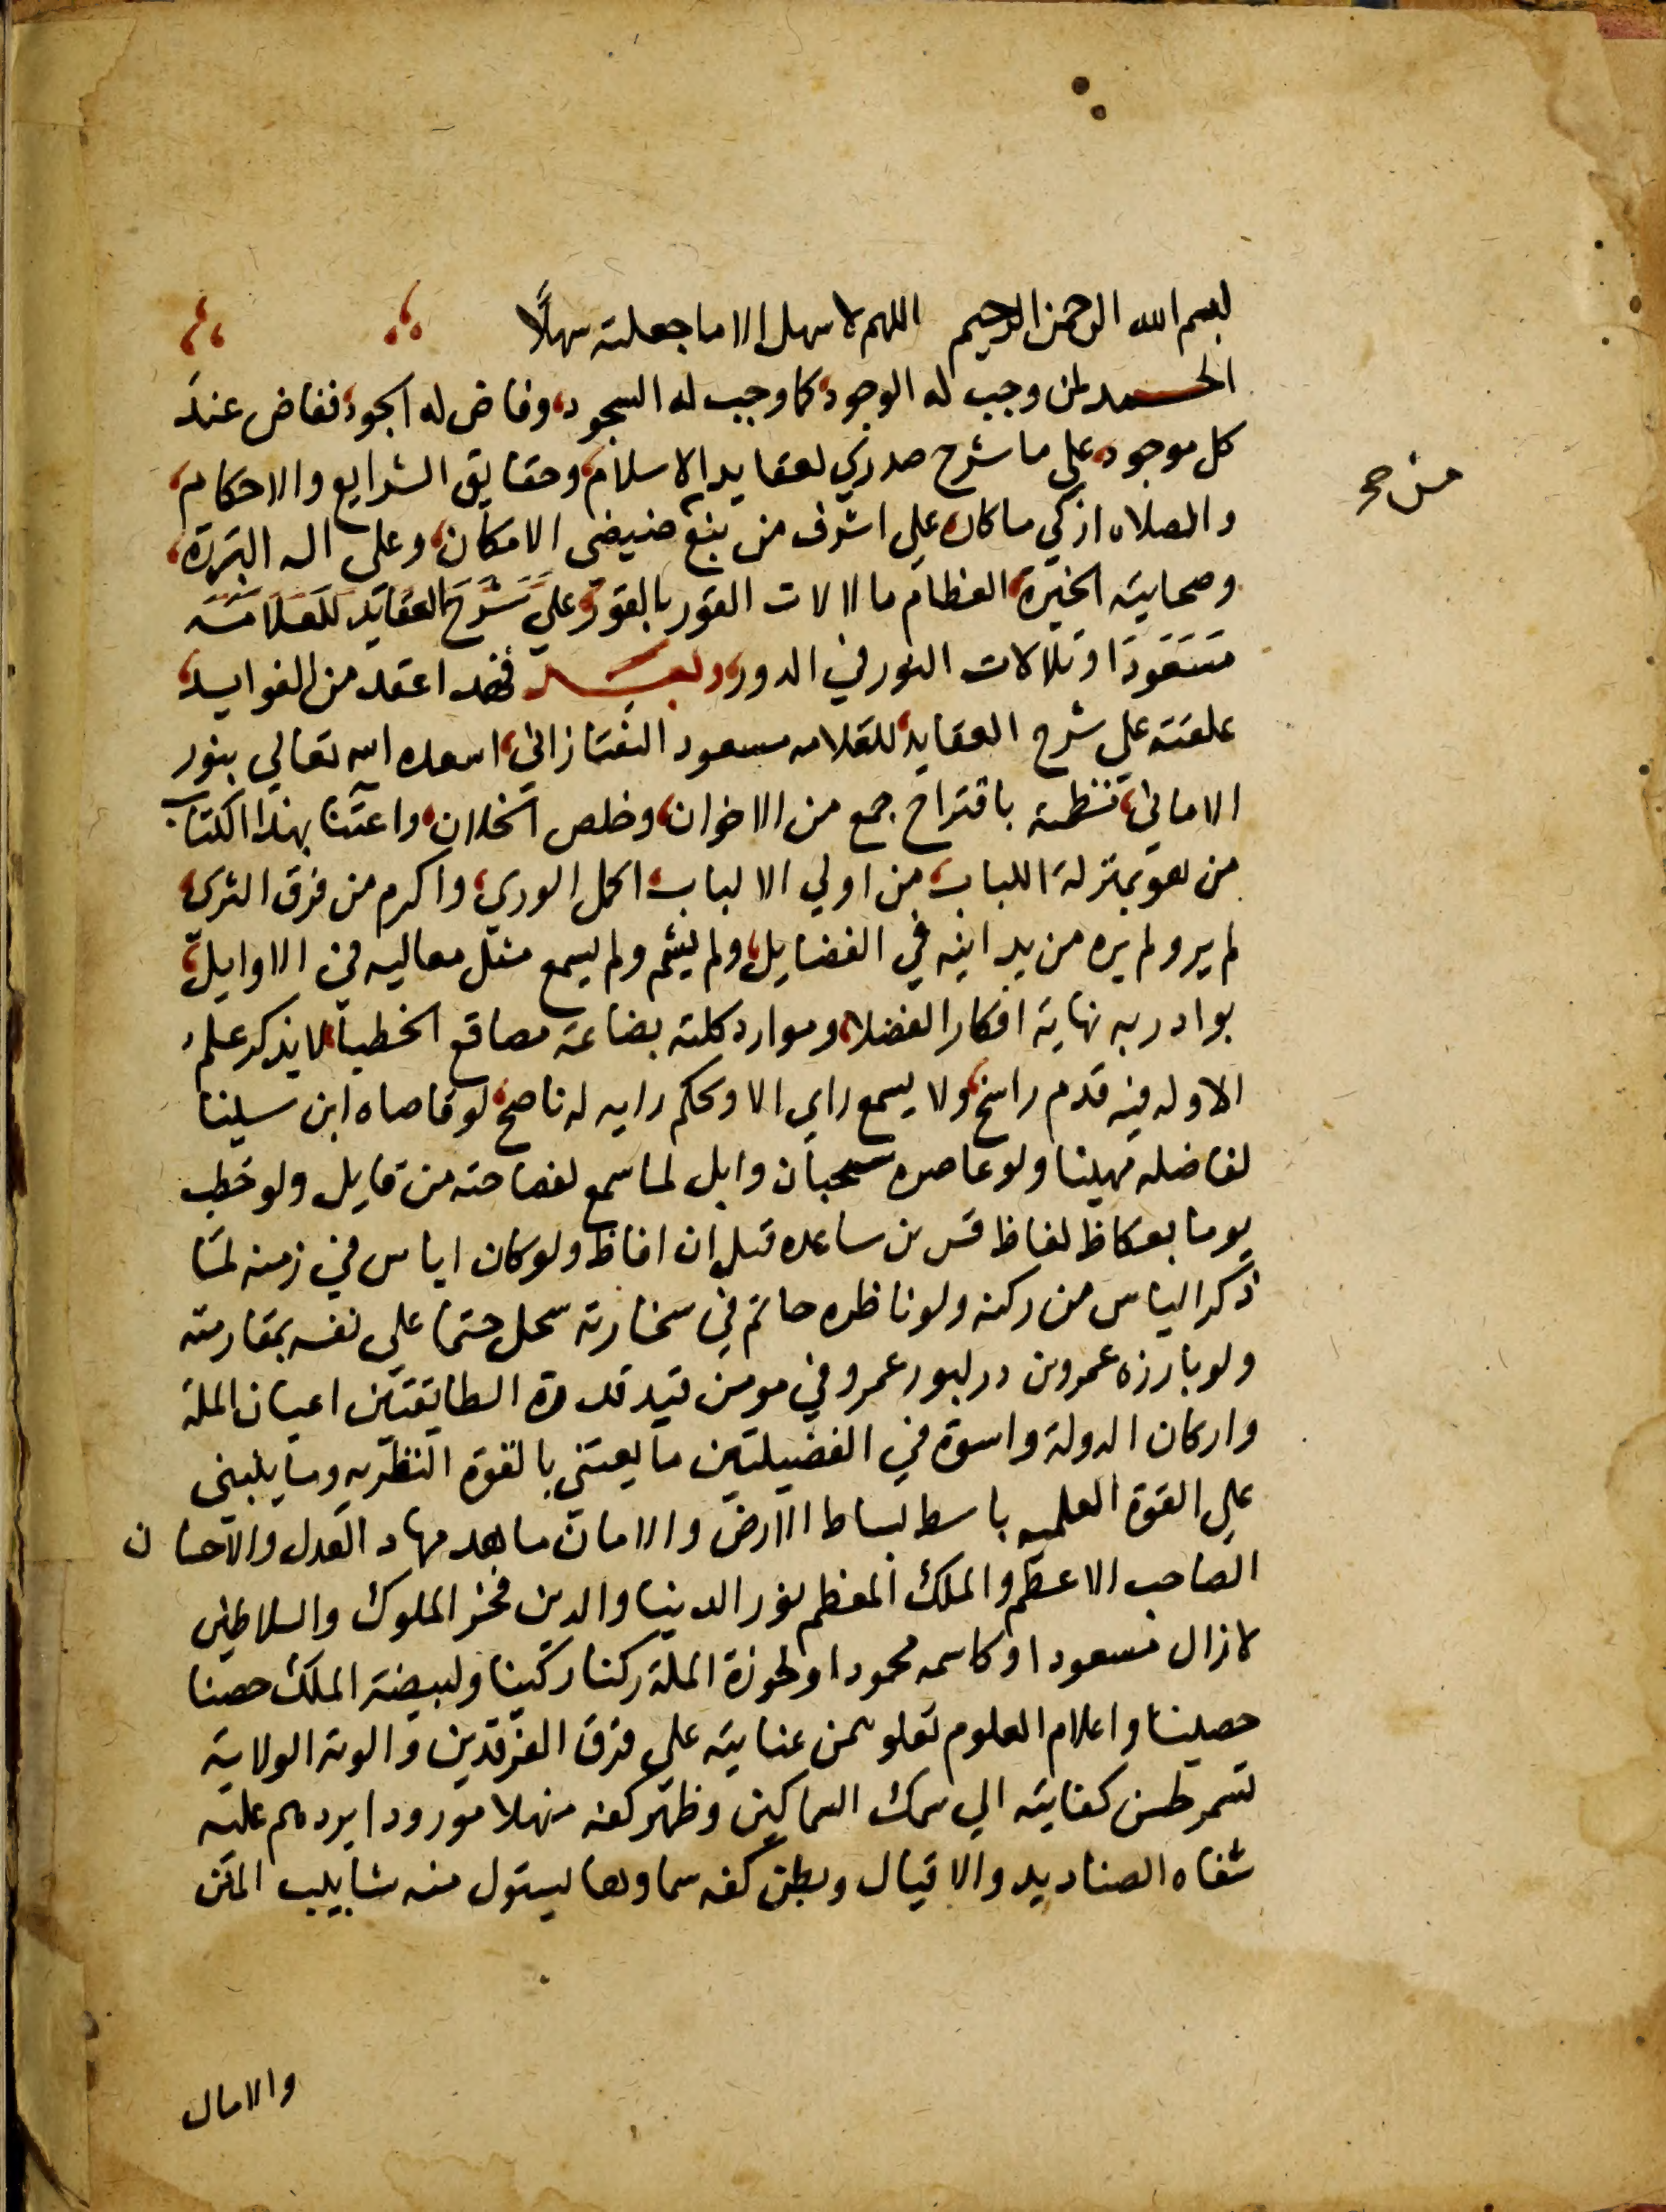 بسم الله الرحمن الرحيم اللهم لا سهل الا ما جعلته سهلًا
الحمد لمن وجب له الوجود، كما وجب له السجود، وفاض له الجود، ففاض عنه
كل موجود، علي ما شرح صدري لعقايد الاسلام، وحقايق الشرايع والاحكام،
من ح
والصلاه ازكي ما كان، علي اشرف من نبع من فيض الامكان، وعلى اله البررة،
وصحابته الخيرة، العظام ما لالات القور بالقور، علي شرح العقايد للعلامة
مسعود، او تلالات النور في الدور، وبعد فهذا عقد من الفوايد،
علقته علي شرح العقايد، للعلامه مسعود التفتازاني، اسعده الله تعالي بنور
الاماني، نظمته باقتراح جمع من الاخوان، وخلص الخلان، واعتنا بهذا الكتاب
من هو بمنزلة اللباب، من اولي الالباب، اكمل الوري، واكرم من فوق الثري،
لم ير ولم يره من يدانيه في الفضايل، ولم يشم ولم يسمع مثل معاليه في الاوايل،
بوادر به نهاية افكار الفضلا، وموارد كلمته بضاعة مصاقع الخطبا، لا يذكر علم
الا وله فيه قدم راسخ، ولا يسمع راي الا وحكم رايه له ناسخ، لو قاصاه ابن سينا
لفاضله مهينا ولو عاصره سحبان وايل لما سمع لفصاحته من قايل ولو خطب
يوما بعكاظ لفاظ قس بن ساعده قبل ان افاظ ولو كان اياس في زمنه لما
ذكر الياس من ركنه ولو ناظره حاتم في سخاوته سجل حتما علي نفسه بمقارمته
ولو بارزه عمرو بن در لبور عمرو في مومن قيد قدوة الطايفتين اعيان الملة
واركان الدولة واسوة في الفضيلتين ما يعتني بالقوة النظريه وما يبتني
علي القوة العلميه باسط بساط الارض والامان ماهد مهاد العدل والاحسان
الصاحب الاعظم والملك المعظم نور الدنيا والدين فخر الملوك والسلاطين
لا زال مسعودا وكاسمه محمودا ولحوزة الملة ركنا ركينا ولبيضة الملك حصنا
حصينا واعلام العلوم تعلو بمن عنايته علي فرق الفرقدين والوية الولاية
تسمر بحسن كفايته الي سمك السماكين وظهر كفه منهلا مورودا يردهم عليه
شفاه الصناديد والاقيال وبطن كفه سماوها يستول منه شابيب المنن
والامال